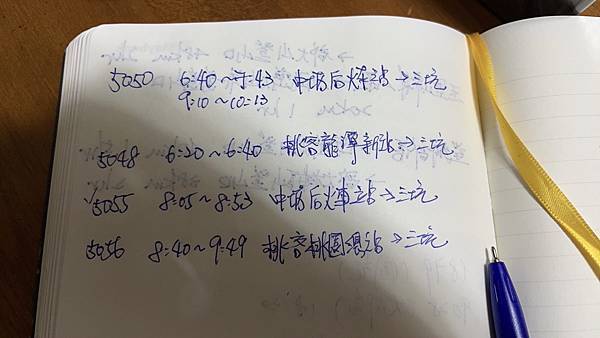 5050 6:40~7:43 中壢后火車站→三坑
9:10~10:13
5048 6:20~6:40 桃客龍潭新站→三坑
5055 8:05~8:53 中壢后火車站→三坑
5056 8:40~9:49 桃客桃園總站→三坑